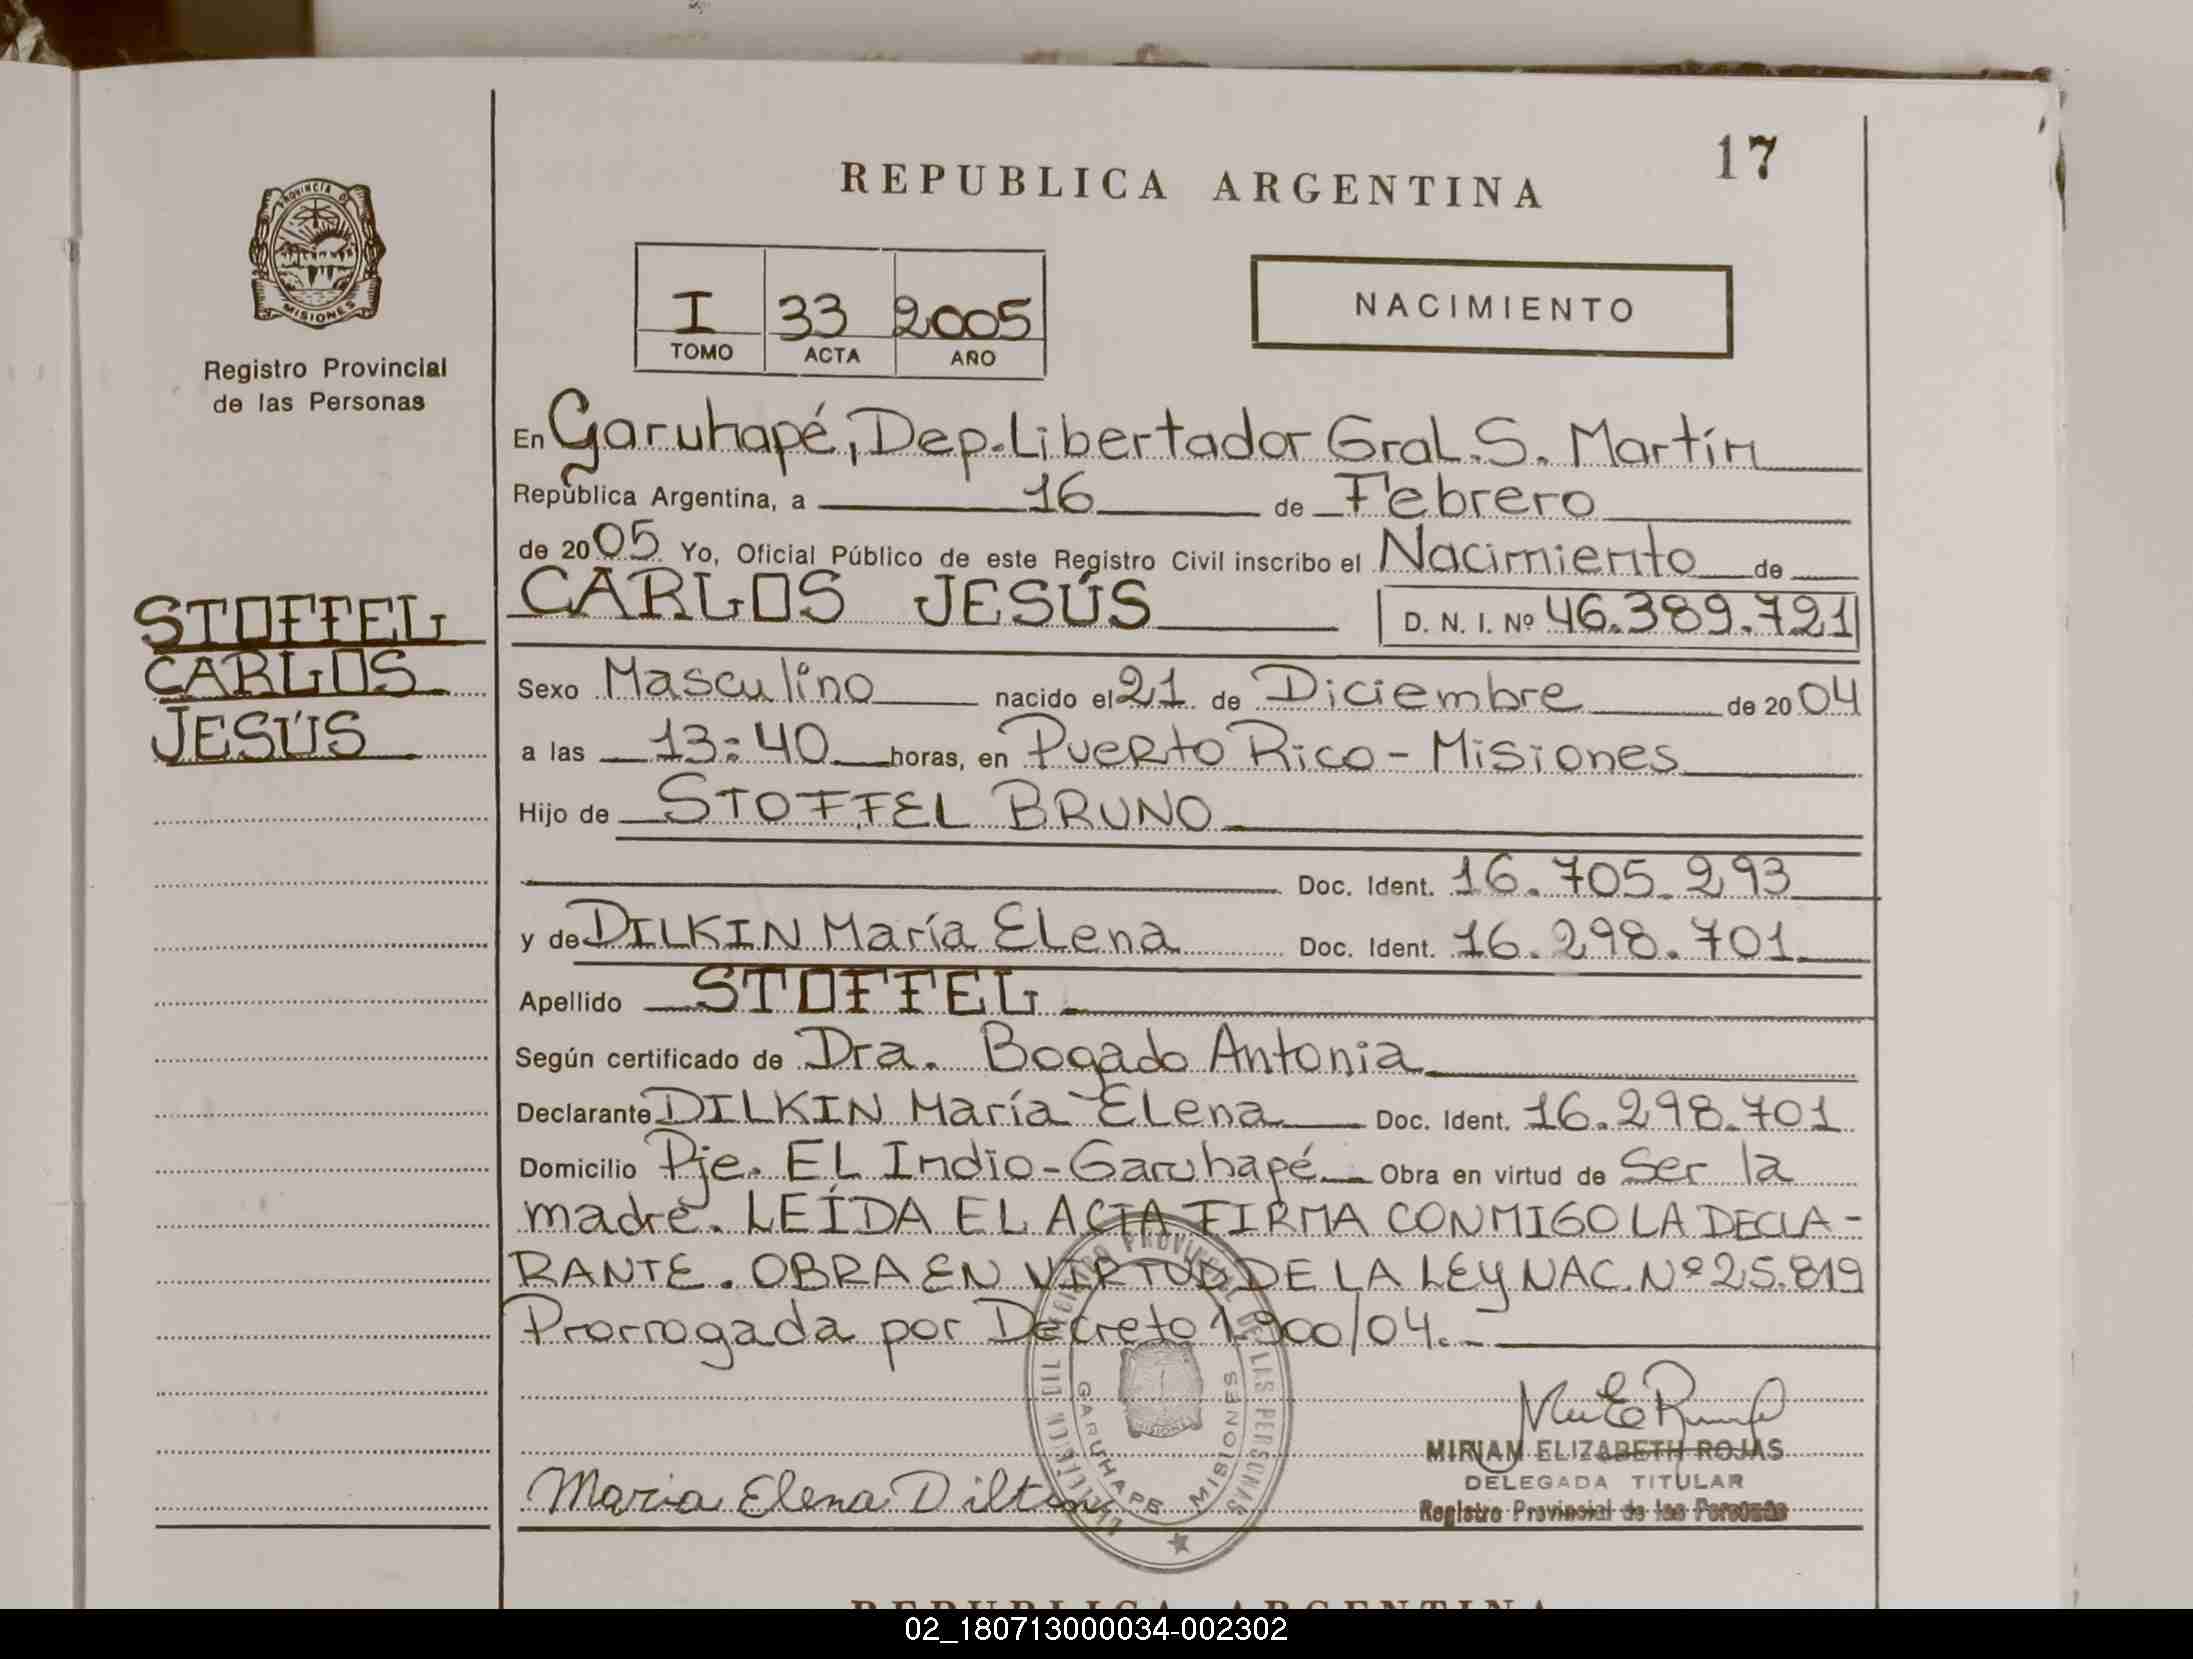 17
REPUBLICA ARGENTINA
PROVINCIA DE
MISIONES
Registro Provincial
de las Personas
I 33 2005
TOMO ACTA AÑO
NACIMIENTO
En Garuhapé, Dep. Libertador Gral. S. Martín
República Argentina, a 16 de Febrero
de 2005 Yo, Oficial Público de este Registro Civil inscribo el Nacimiento de
CARLOS JESÚS D. N. I. Nº 46.389.721
STOFFEL
CARLOS
JESÚS
Sexo Masculino nacido el 21 de Diciembre de 2004
a las 13:40 horas, en Puerto Rico - Misiones
Hijo de STOFFEL BRUNO
Doc. Ident. 16.705.293
y de DILKIN María Elena Doc. Ident. 16.298.701
Apellido STOFFEL
Según certificado de Dra. Bogado Antonia
Declarante DILKIN María Elena Doc. Ident. 16.298.701
Domicilio Pje. EL Indio - Garuhapé Obra en virtud de Ser la
madre. LEÍDA EL ACTA FIRMA CONMIGO LA DECLA-
RANTE. OBRA EN VIRTUD DE LA LEY NAC. Nº 25.819
Prorrogada por Decreto 1.900/04.-
PROVINCIAL DE LAS PERSONAS
GARUHAPE MISIONES
MIRIAM ELIZABETH ROJAS
DELEGADA TITULAR
Registro Provincial de las Personas
Maria Elena Dilkin
REPUBLICA ARGENTINA
02_180713000034-002302